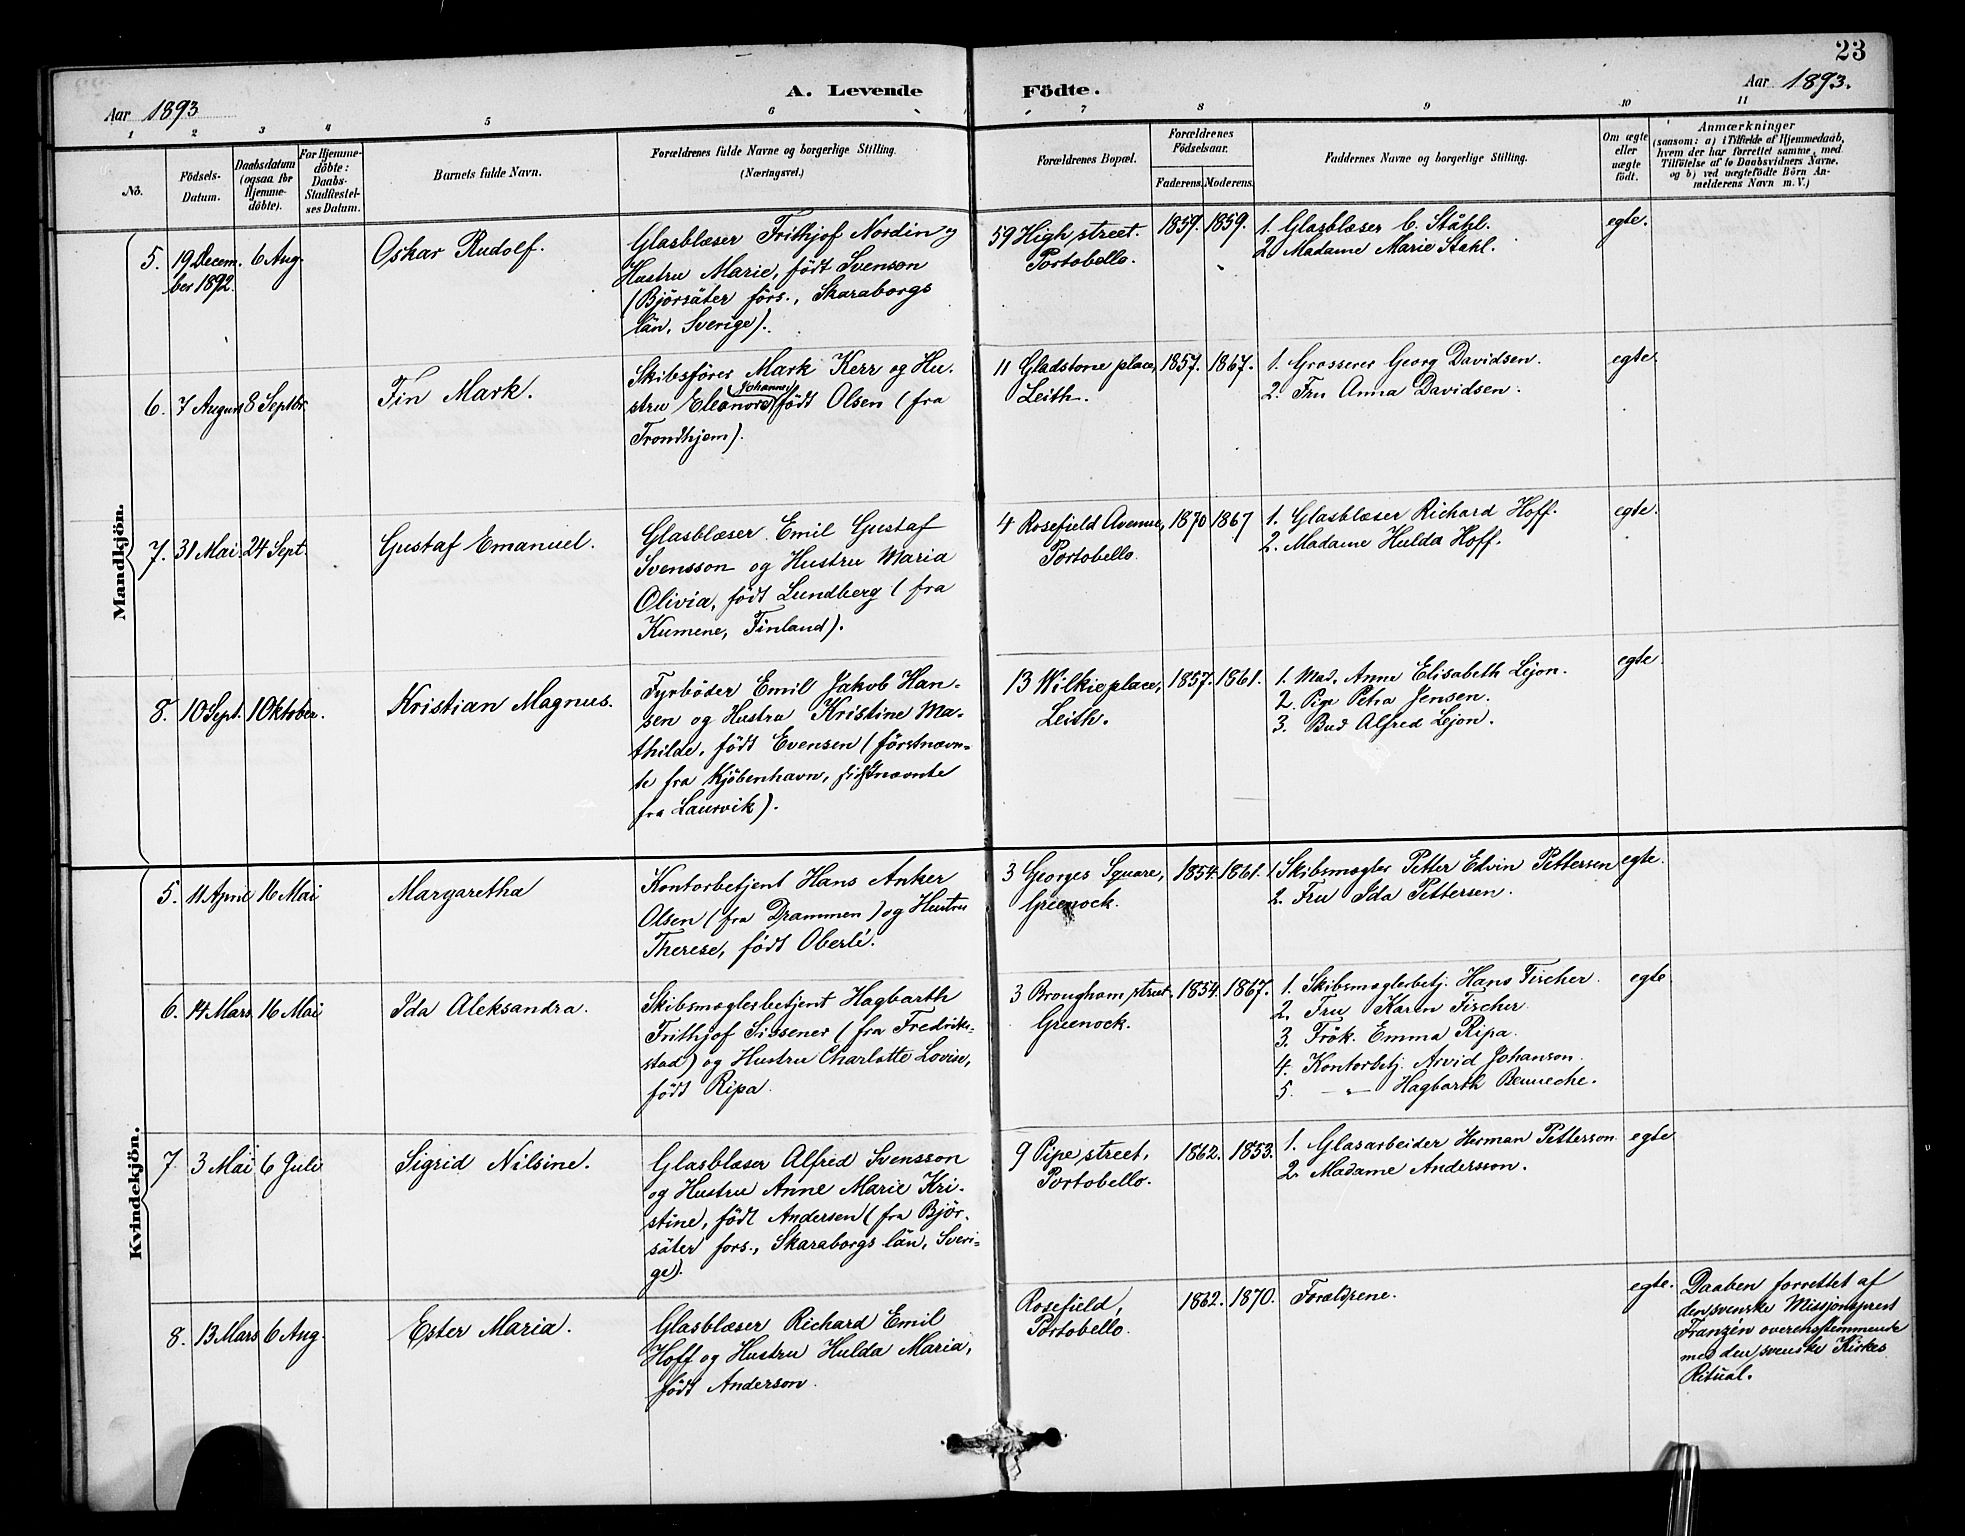 23
Aar 1893
A. Levende Födte.
Aar 1893.
1 2 3 4 5 6 7 8 9 10 11
No.
Födsels-
Datum.
Daabsdatum
(ogsaa for
Hjemme-
döbte).
For Hjemme-
döbte:
Daabs-
Stadfæstel-
ses Datum.
Barnets fulde Navn.
Forældrenes fulde Navne og borgerlige Stilling.
(Næringsvei.)
Forældrenes Bopæl.
Forældrenes
Födselsaar.
Faderens. Moderens.
Faddernes Navne og borgerlige Stilling.
Om ægte
eller
uægte
födt.
Anmærkninger
(saasom: a) i Tilfælde af Hjemmedaab,
hvem der har forrettet samme, med
Tilföielse af to Daabsvidners Navne,
og b) ved uægtefödte Börn An-
melderens Navn m. V.)
Mandkjön.
5. 19 Decem-
ber 1892.
6 Aug.
Oskar Rudolf.
Glasblæser Frithjof Nordin og
Hustru Marie, födt Svenson
(Björsäter förs., Skaraborgs
län, Sverige).
59 High street.
Portobello.
1859. 1859.
1. Glasblæser C. Ståhl.
2. Madame Marie Stahl.
egte.
6. 7 August 8 Septbr.
Fin Mark.
Skibsförer Mark Kerr og Hu-
stru Eleonore Johanne födt Olsen (fra
Trondhjem).
11 Gladstone place,
Leith.
1857. 1867.
1. Grosserer Georg Davidsen.
2. Fru Anna Davidsen.
egte.
7. 31 Mai. 24 Sept.
Gustaf Emanuel.
Glasblæser Emil Gustaf
Svensson og Hustru Maria
Olivia, födt Lundberg (fra
Kumene, Finland).
4 Rosefield Avenue,
Portobello.
1870 1867
1. Glasblæser Richard Hoff.
2. Madame Hulda Hoff.
egte.
8. 10 Sept. 1 Oktober.
Kristian Magnus.
Fyrböder Emil Jakob Han-
sen og Hustru Kristine Ma-
thilde, födt Evensen (förstnævn-
te fra Kjöbenhavn, sidstnævnte
fra Laurvik).
13 Wilkie place,
Leith.
1857. 1861.
1. Mad. Anne Elisabeth Lejon.
2. Pige Petra Jensen.
3. Bud Alfred Lejon.
egte.
Kvindekjön.
5. 11 April 16 Mai
Margaretha
Kontorbetjent Hans Anker
Olsen (fra Drammen) og Hustru
Therese, födt Oberlé.
3 Georges Square,
Greenock.
1854. 1861.
1 Skibsmægler Petter Edvin Pettersen
2. Fru Ida Pettersen.
egte.
6. 14 Mars 16 Mai
Ida Aleksandra.
Skibsmæglerbetjent Hagbarth
Frithjof Sissener (fra Fredriks-
stad) og Hustru Charlotte Lovise,
födt Ripa.
3 Brougham street.
Greenock.
1854. 1867.
1. Skibsmæglerbetj. Hans Fischer.
2. Fru Karen Fischer.
3. Frök. Emma Ripa.
4. Kontorbetj. Arvid Johanson.
5. — „ — Hagbarth Benneche.
egte
7. 3 Mai 6 Juli
Sigrid Nilsine.
Glasblæser Alfred Svensson
og Hustru Anne Marie Kri-
stine, födt Andersen (fra Björ-
säter fors., Skaraborgs län, Sveri-
ge).
9 Pipe street,
Portobello.
1862. 1853.
1. Glasarbeider Herman Petterson
2. Madame Andersson.
egte
8. 13 Mars 6 Aug.
Ester Maria.
Glasblæser Richard Emil
Hoff og Hustru Hulda Maria,
födt Anderson.
Rosefield,
Portobello.
1862. 1870.
Forældrene.
egte.
Daaben forrettet af
den svenske Missionsprest
Franzén overensstemmende
med den svenske Kirkes
Ritual.